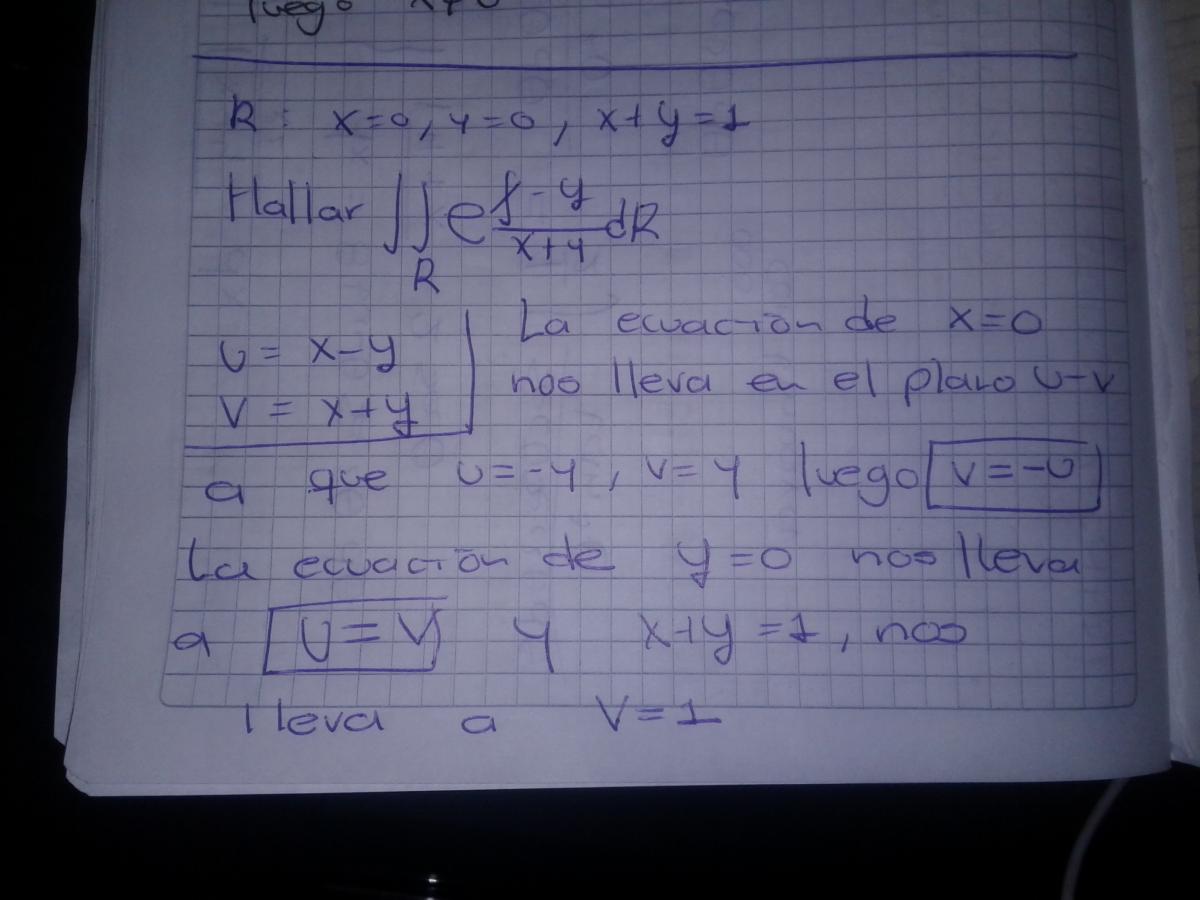 luego
R: x=0, y=0, x+y=1
Hallar ∬_R e^{\frac{x-y}{x+y}} dR
U = x-y
V = x+y
La ecuación de x=0
nos lleva en el plano U-V
a que U=-y, V=y luego V=-U
La ecuación de y=0 nos lleva
a U=V y x+y=1, nos
lleva a V=1